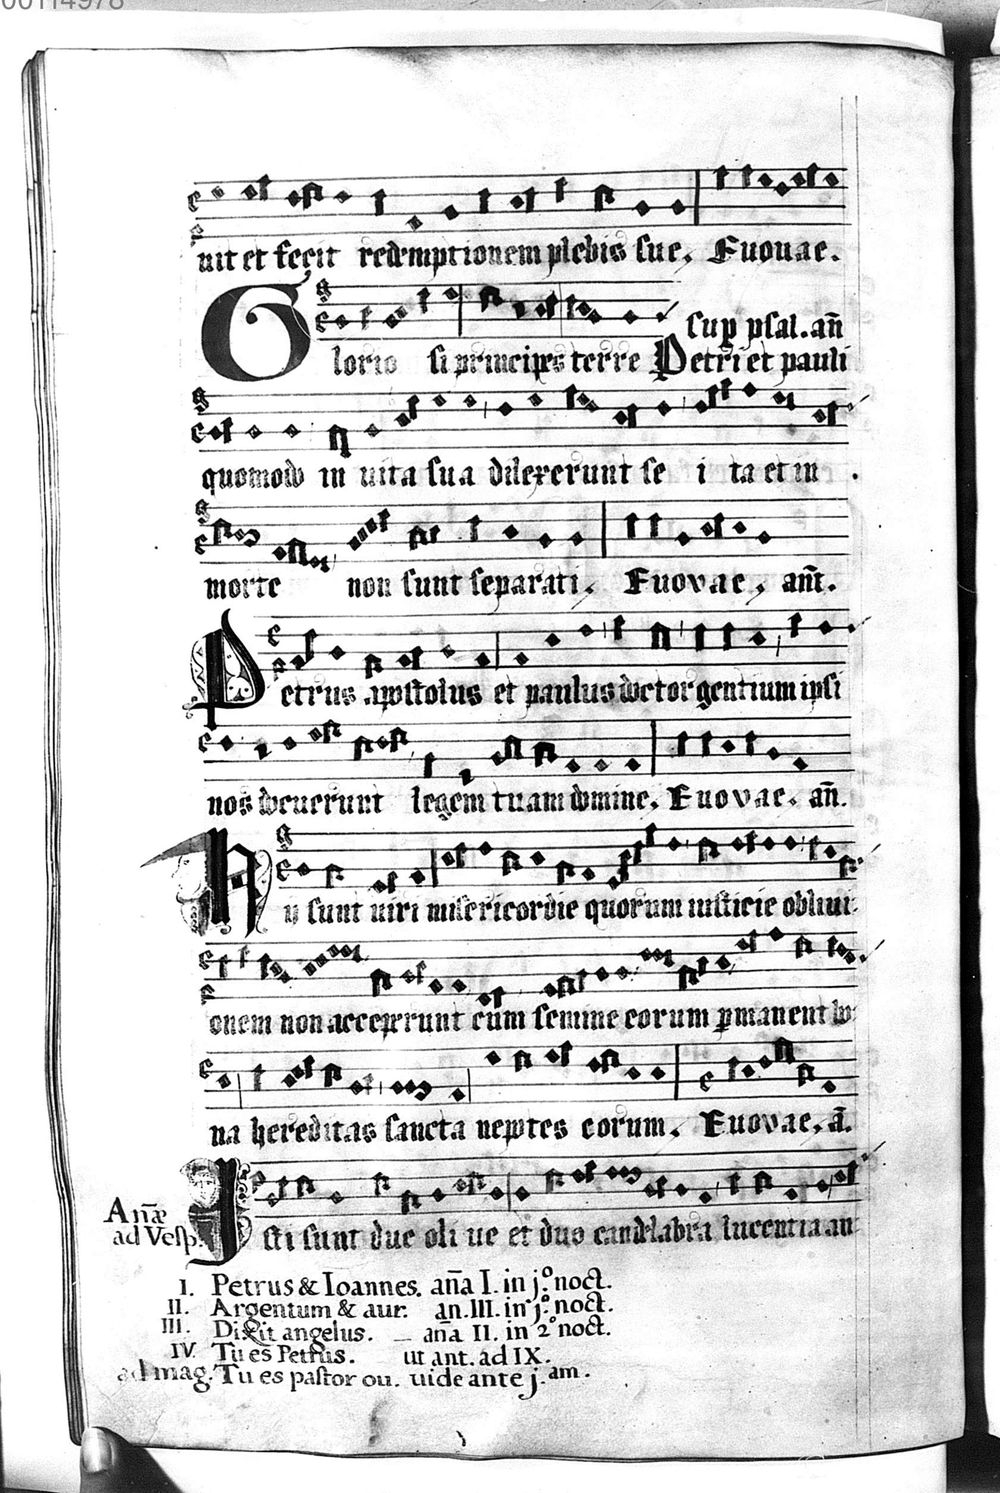 00114978
uit et fecit redemptionem plebis sue, Euouae.
sup psal. añ
Glorio si principes terre Petri et pauli
quomodo in uita sua dilexerunt se i ta et in
morte non sunt separati. Euovae, añt.
Petrus apostolus et paulus doctor gentium ipsi
nos docuerunt legem tuam domine. Euovae. añ.
Hy sunt uiri misericordie quorum iusticie obliui
onem non acceperunt cum semine eorum pmanent bo
na hereditas sancta nepotes eorum. Euovae. ā.
Isti sunt due oli ue et duo candelabra lucentia an
Anæ
ad Vesp.
I. Petrus & Ioannes. aña I. in j.º noct.
II. Argentum & aur. an. III. in j.º noct.
III. Dixit angelus. aña II. in 2º noct.
IV. Tu es Petrus. ut ant. ad IX.
ad mag. Tu es pastor ou. uide ante j. am.